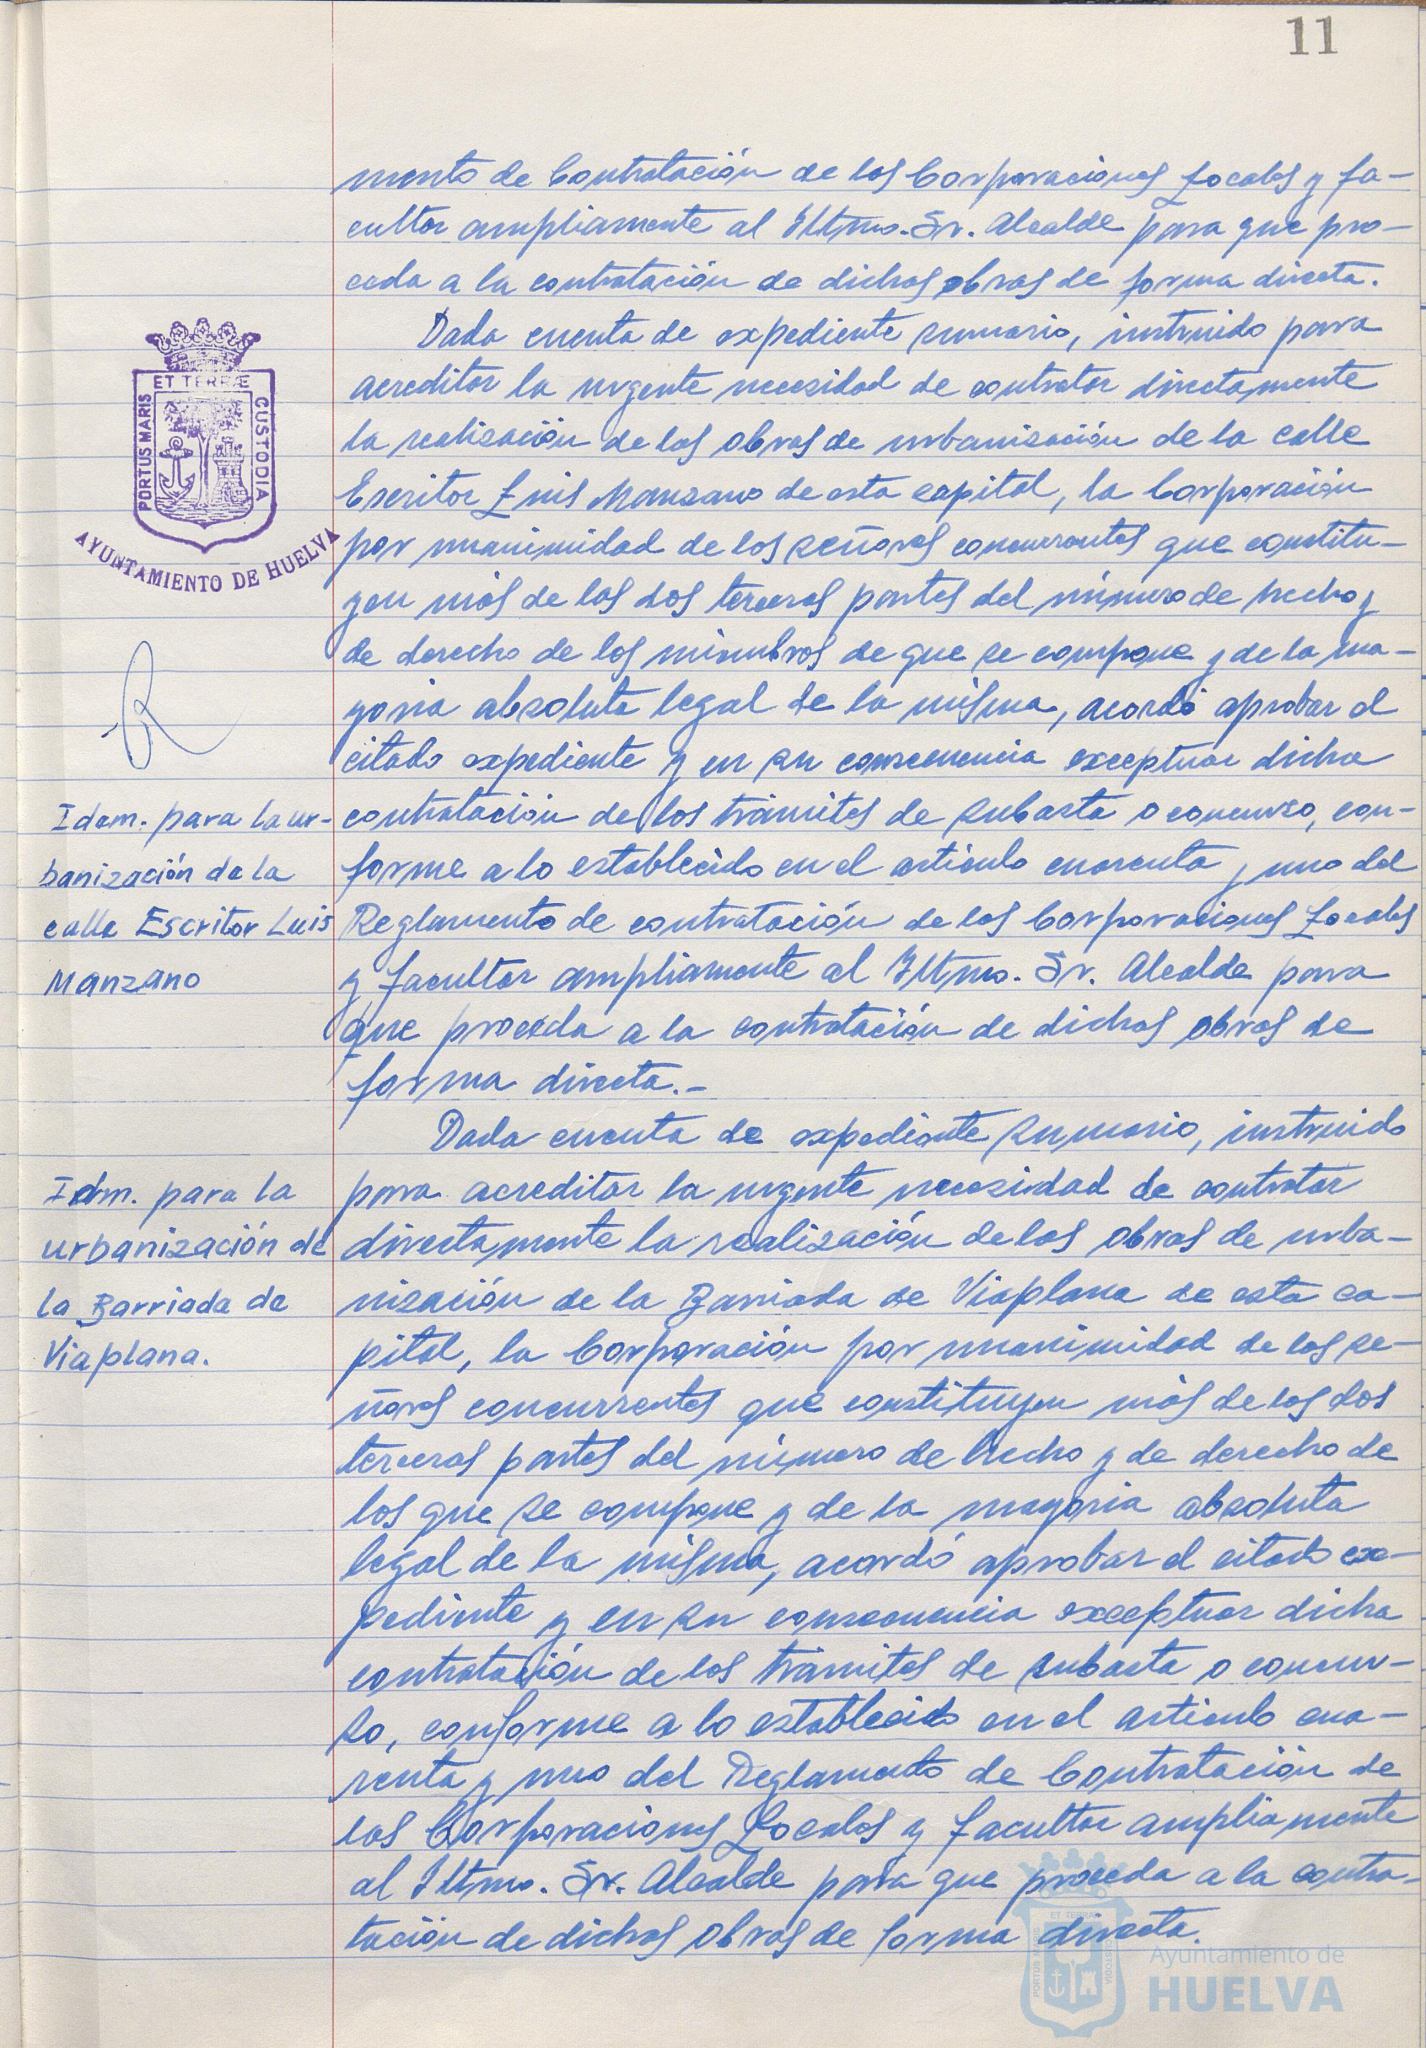 11
mento de Contratación de las Corporaciones Locales y fa-
cultar ampliamente al Iltmo. Sr. Alcalde para que pro-
ceda a la contratación de dichas obras de forma directa.
Dada cuenta de expediente sumario, instruido para
acreditar la urgente necesidad de contratar directamente
la realización de las obras de urbanización de la calle
Escritor Luis Manzano de esta capital, la Corporación
por unanimidad de los señores concurrentes que constitu-
yen más de las dos terceras partes del número de hecho y
de derecho de los miembros de que se compone y de la ma-
yoria absoluta legal de la misma, acordó aprobar el
citado expediente y en su consecuencia exceptuar dicha
contratación de los trámites de subasta o concurso, con-
forme a lo establecido en el articulo cuarenta y uno del
Reglamento de contratación de las Corporaciones Locales
y facultar ampliamente al Iltmo. Sr. Alcalde para
que proceda a la contratación de dichas obras de
forma directa.-
Dada cuenta de expediente sumario, instruido
para acreditar la urgente necesidad de contratar
directamente la realización de las obras de urba-
nización de la Barriada de Viaplana de esta ca-
pital, la Corporación por unanimidad de los se-
ñores concurrentes que constituyen más de las dos
terceras partes del número de hecho y de derecho de
los que se compone y de la mayoria absoluta
legal de la misma, acordó aprobar el citado ex-
pediente y en su consecuencia exceptuar dicha
contratación de los trámites de subasta o concur-
so, conforme a lo establecido en el articulo cua-
renta y uno del Reglamento de Contratación de
las Corporaciones Locales y facultar ampliamente
al Iltmo. Sr. Alcalde para que proceda a la contra-
tación de dichas obras de forma directa.
PORTUS MARIS
ET TERRÆ
CUSTODIA
AYUNTAMIENTO DE HUELVA
Idem. para la ur-
banización de la
calle Escritor Luis
Manzano
Idm. para la
urbanización de
la Barriada de
Viaplana.
PORTUS MARIS
ET TERRÆ
CUSTODIA
Ayuntamiento de
HUELVA